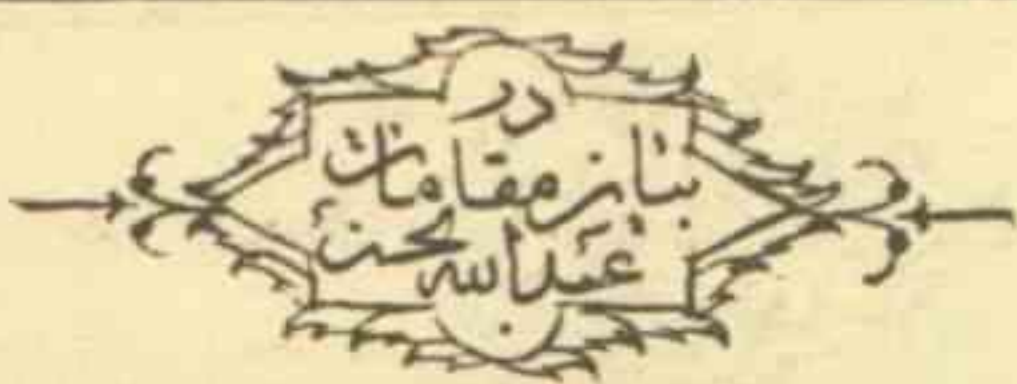 در
بیان مقامات
عبدالله